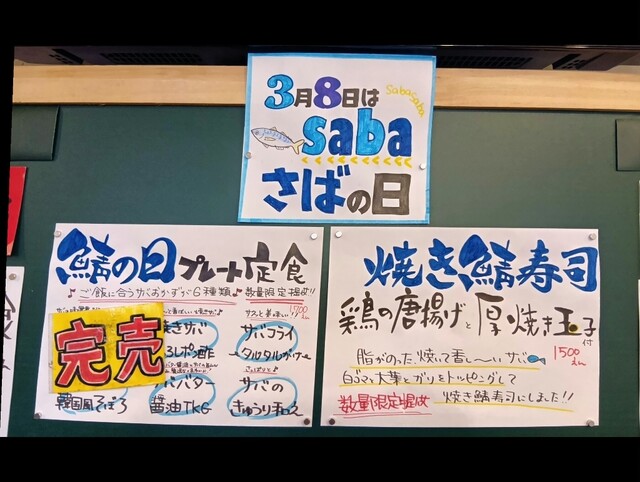 3月8日は
sabasaba
saba
さばの日
鯖の日プレート定食
♪ご飯に合うサバおかずが6種類♪ 数量限定提供!!
1700えん
完売
焼きサバ
サバフライ
おろしポン酢
タルタルがけ
バター
サバの
韓国風そぼろ
醤油TKG
きゅうり和え
焼き鯖寿司
鶏の唐揚げと厚焼き玉子付
脂がのった、焼いて香し〜いサバ
1500えん
白ゴマ、大葉とガリをトッピングして
数量限定提供
焼き鯖寿司にしました!!